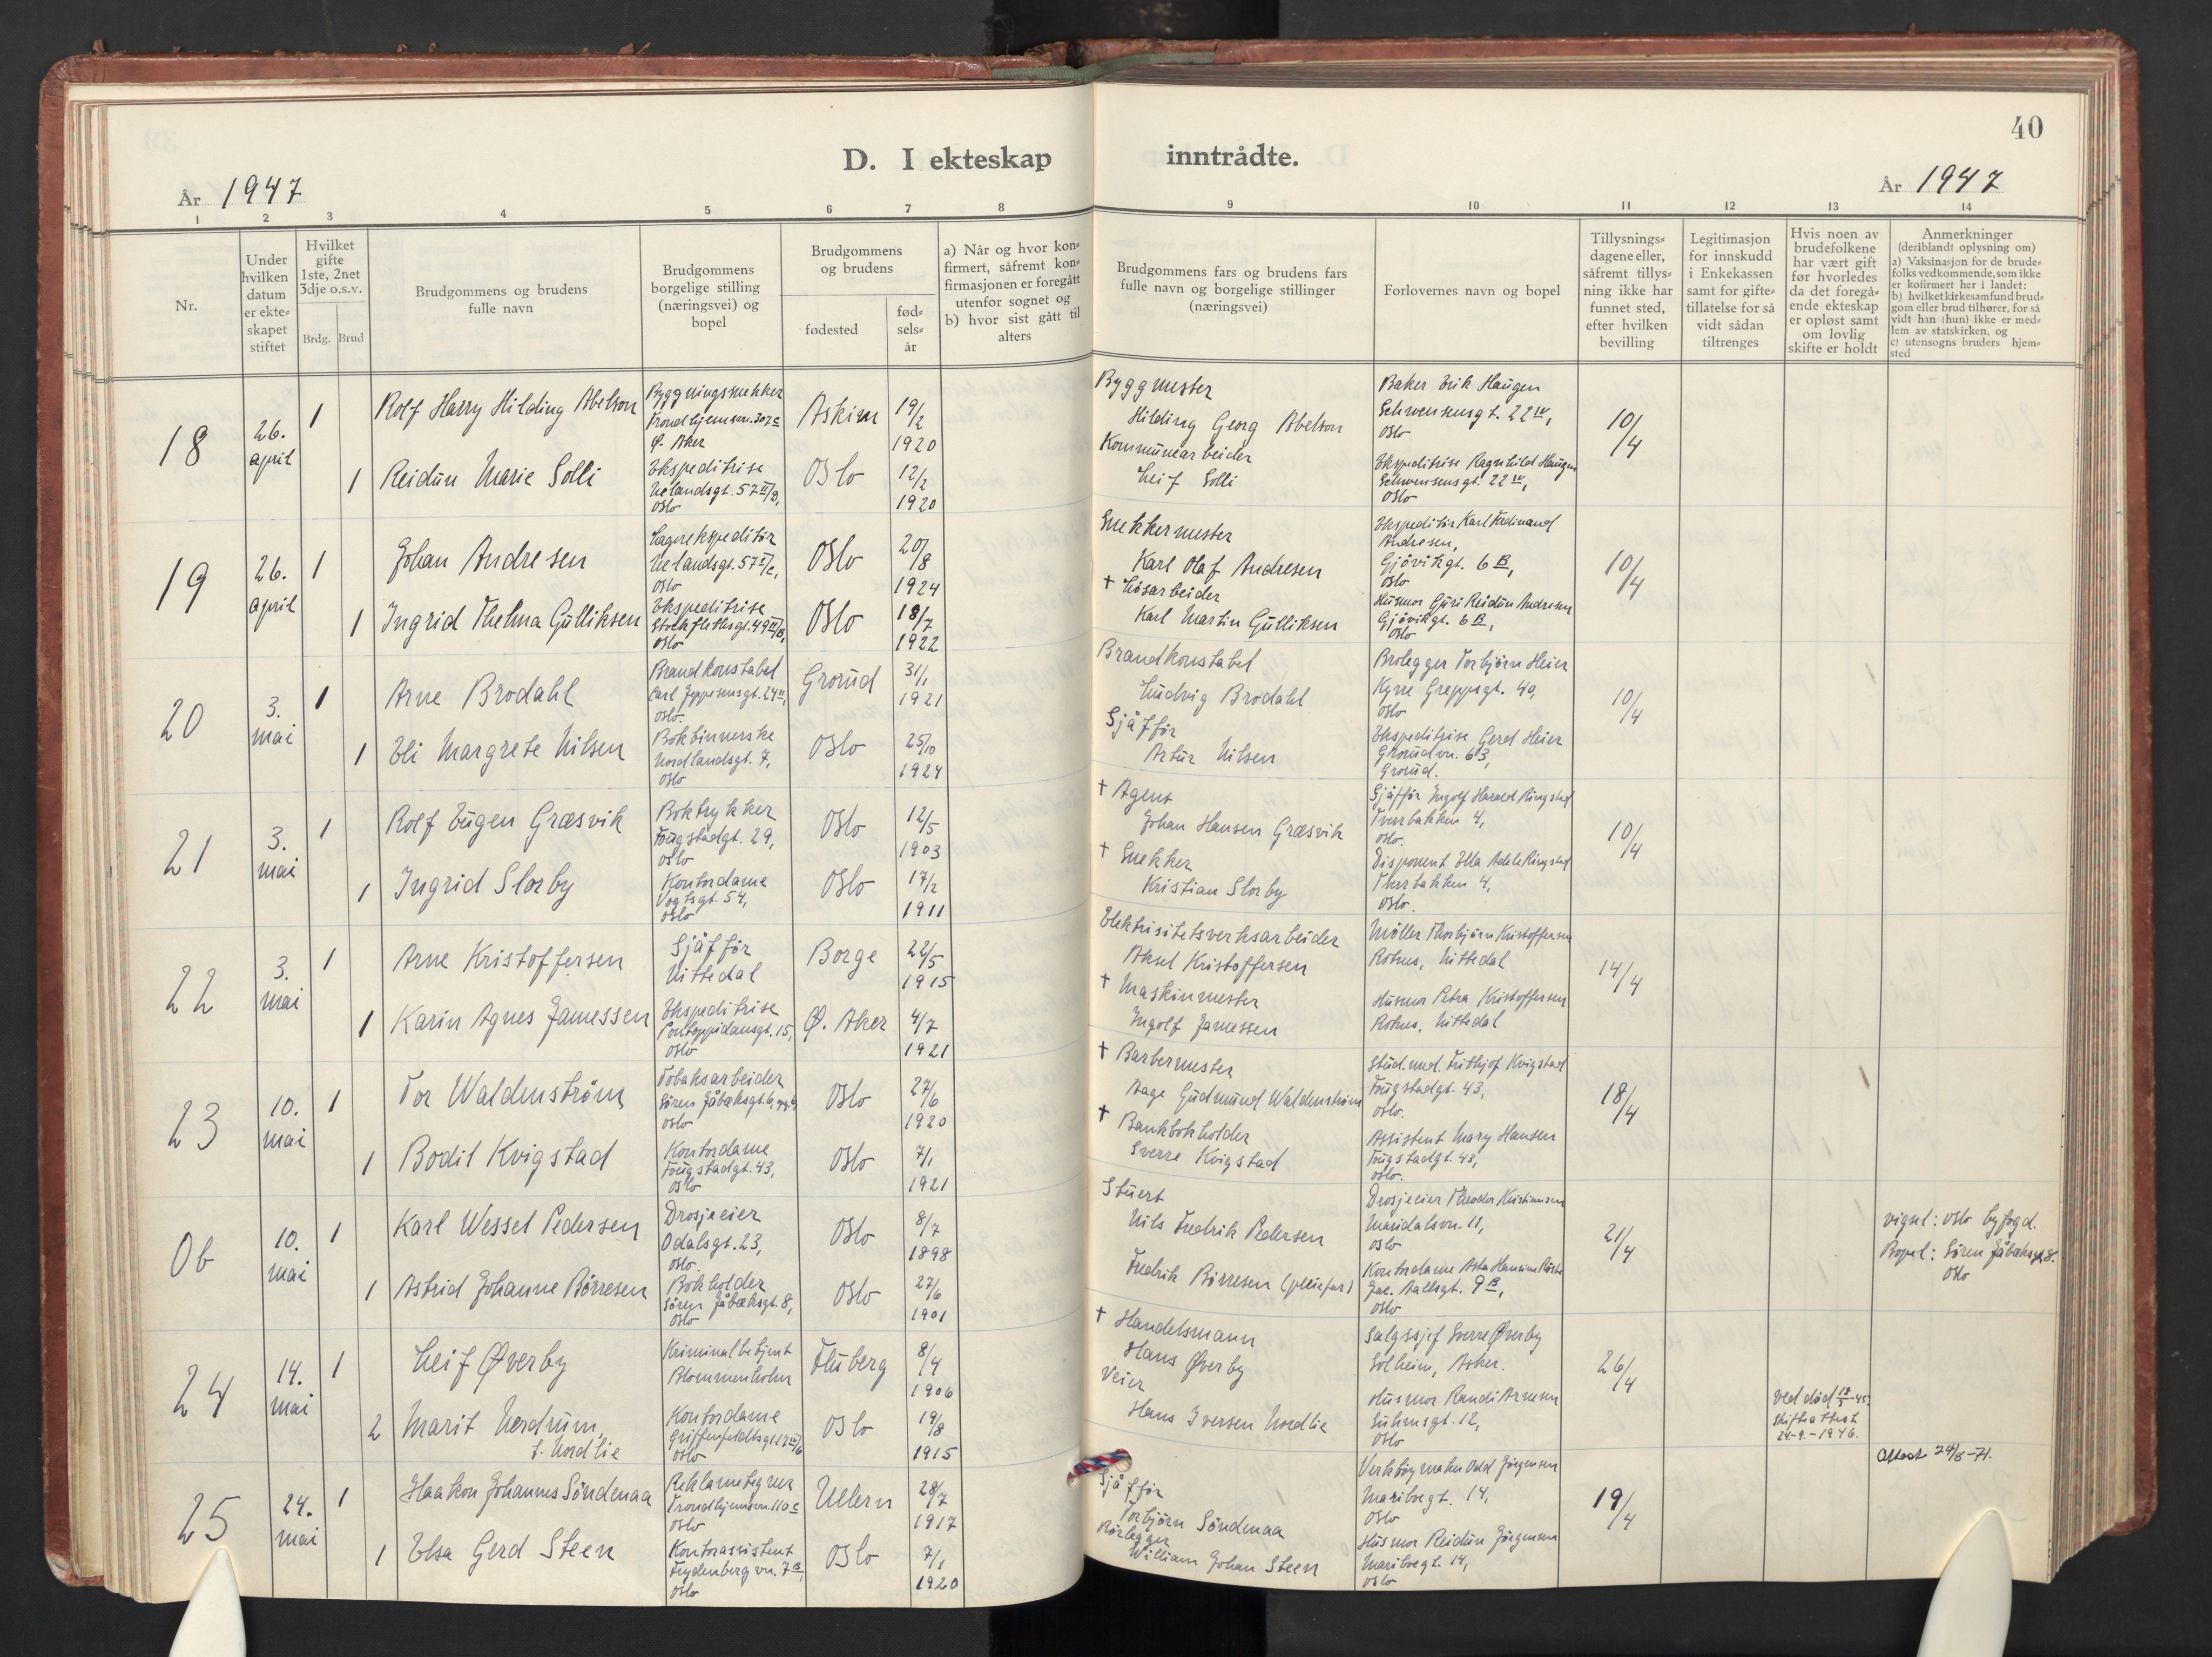 40
D. I ekteskap inntrådte.
År 1947
År 1947
1 2 3 4 5 6 7 8 9 10 11 12 13 14
Nr.
Under hvilken datum er ekte-skapet stiftet
Hvilket gifte 1ste, 2net 3dje o.s.v.
Brdg. Brud
Brudgommens og brudens fulle navn
Brudgommens borgelige stilling (næringsvei) og bopel
Brudgommens og brudens
fødested
fød-sels-år
a) Når og hvor kon-firmert, såfremt kon-firmasjonen er foregått utenfor sognet og b) hvor sist gått til alters
Brudgommens fars og brudens fars fulle navn og borgelige stillinger (næringsvei)
Forlovernes navn og bopel
Tillysnings-dagene eller, såfremt tillys-ning ikke har funnet sted, efter hvilken bevilling
Legitimasjon for innskudd i Enkekassen samt for gifte-tillatelse for så vidt sådan tiltrenges
Hvis noen av brudefolkene har vært gift før hvorledes da det foregå-ende ekteskap er opløst samt om lovlig skifte er holdt
Anmerkninger
(deriblandt oplysning om)
a) Vaksinasjon for de brude-folks vedkommende, som ikke er kofirmert her i landet:
b) hvilket kirkesamfund brud-gom eller brud tilhører, for så vidt han (hun) ikke er med-lem av statskirken, og
c) utensogns bruders hjem-sted
18
26. april
1 Rolf Harry Hilding Abelson
Byggningssnekker
Trondhjemsvn. 302 c
Ø. Aker
Askim
19/2 1920
Byggmester
Hilding Georg Abelson
Baker Erik Haugen
Schwensensgt. 22 IV,
Oslo
10/4
1 Reidun Marie Solli
Ekspeditrise
Uelandsgt. 57 II/2,
Oslo
Oslo
12/2 1920
Kommunearbeider
Leif Solli
Ekspeditrise Ragnhild Haugen
Schwensensgt. 22 IV,
Oslo
19
26. april
1 Johan Andresen
Lagerekspeditør
Uelandsgt. 57 I/c,
Oslo
Oslo
20/8 1924
Snekkermester
Karl Olaf Andresen
Ekspeditør Karl Ferdinand
Andresen,
Gjøvikgt. 6 B,
Oslo
10/4
1 Ingrid Thelma Gulliksen
Ekspeditrise
Stockflethsgt. 49 II/B,
Oslo
Oslo
18/7 1922
† Løsarbeider
Karl Martin Gulliksen
Husmor Guri Reidun Andresen
Gjøvikgt. 6 B,
Oslo
20
3. mai
1 Arne Brodahl
Brandkonstabel
Carl Jeppesensgt. 24 II,
Oslo.
Grorud
31/1 1921
Brandkonstabel
Ludvig Brodahl
Brolegger Torbjørn Heier
Kyrre Greppsgt. 40,
Oslo
10/4
1 Eli Margrete Nilsen
Bokbinnerske
Nordlandsgt. 7,
Oslo
Oslo
25/10 1924
Sjåffør
Artur Nilsen
Ekspeditrise Gerd Heier
Grorudvn. 63,
Grorud.
21
3. mai
1 Rolf Eugen Græsvik
Boktrykker
Fougstadgt. 29,
Oslo
Oslo
12/5 1903
† Agent
Johan Hansen Græsvik
Sjåffør Ingolf Harald Ringstad
Tverrbakken 4,
Oslo.
10/4
1 Ingrid Slorby
Kontordame
Vogtsgt. 54,
Oslo
Oslo
17/2 1911
† Snekker
Kristian Slorby
Disponent Ella Adele Ringstad
Tverrbakken 4,
Oslo.
22
3. mai
1 Arne Kristoffersen
Sjåffør
Nittedal
Borge
22/5 1915
Elektrisitetsverksarbeider
Aksel Kristoffersen
Møller Thorbjørn Kristoffersen
Rotnes, Nittedal
14/4
1 Karin Agnes Jamessen
Ekspeditrise
Pontoppidansgt. 15,
Oslo
Ø. Aker
4/7 1921
† Maskinmester
Ingolf Jamessen
Husmor Petra Kristoffersen
Rotnes, Nittedal
23
10. mai
1 Tor Waldenstrøm
Tobaksarbeider
Søren Jåbæksgt. 6,
Oslo
Oslo
27/6 1920
† Barbermester
Aage Gudmund Waldenstrøm
Stud. med. Fritthjof Kvigstad
Fougstadgt. 43,
Oslo.
18/4
1 Bodil Kvigstad
Kontordame
Fougstadgt. 43,
Oslo
Oslo
7/1 1921
† Bankbokholder
Sverre Kvigstad
Assistent Mary Hansen
Fougstadgt. 43,
Oslo.
Ob
10. mai
1 Karl Wessel Pedersen
Drosjeeier
Odalsgt. 23,
Oslo.
Oslo
8/7 1898
Stuert
Nils Fredrik Pedersen
Drosjeeier Theodor Kristiansen
Maridalsvn. 11,
Oslo
21/4
vigsel: Oslo byfogd.
Bopel: Søren Jåbæksgt. 8.
Oslo
1 Astrid Johanne Børresen
Bokholder
Søren Jåbæksgt. 8,
Oslo
Oslo
27/6 1901
Fredrik Børresen (pleiefar)
Kontordame Asta Hansine
Jac. Aallsgt. 9 B,
Oslo
24
14. mai
1 Leif Øverby
Kriminalbetjent
Blommenholm
Fluberg
8/4 1906
† Handelsmann
Hans Øverby
Salgssjef Sverre Øverby
Solheim, Asker.
26/4
2 Marit Nordrum,
f. Nordlie
Kontordame
Griffenfeldtsgt. 17 III/6
Oslo
Oslo
19/8 1915
Veier
Hans Iversen Nordlie
Husmor Randi Arnesen
Suhmsgt. 12,
Oslo
ved død 18/5-45.
Skifteattest
24.-9.-1946.
Attest 24/8-71.
25
24. mai
1 Haakon Johannes Søndenaa
Reklametegner
Trondhjemsvn. 110 c
Oslo
Ullern
28/7 1917
Sjåffør
Torbjørn Søndenaa
Verktøymaker Odd Jørgensen
Maribogt. 14,
Oslo
19/4
1 Elsa Gerd Steen
Kontorassistent
Frydenbergvn. 7 B,
Oslo
Oslo
7/1 1920
Rørlegger
William Johan Steen
Husmor Reidun Jørgensen
Maribogt. 14,
Oslo